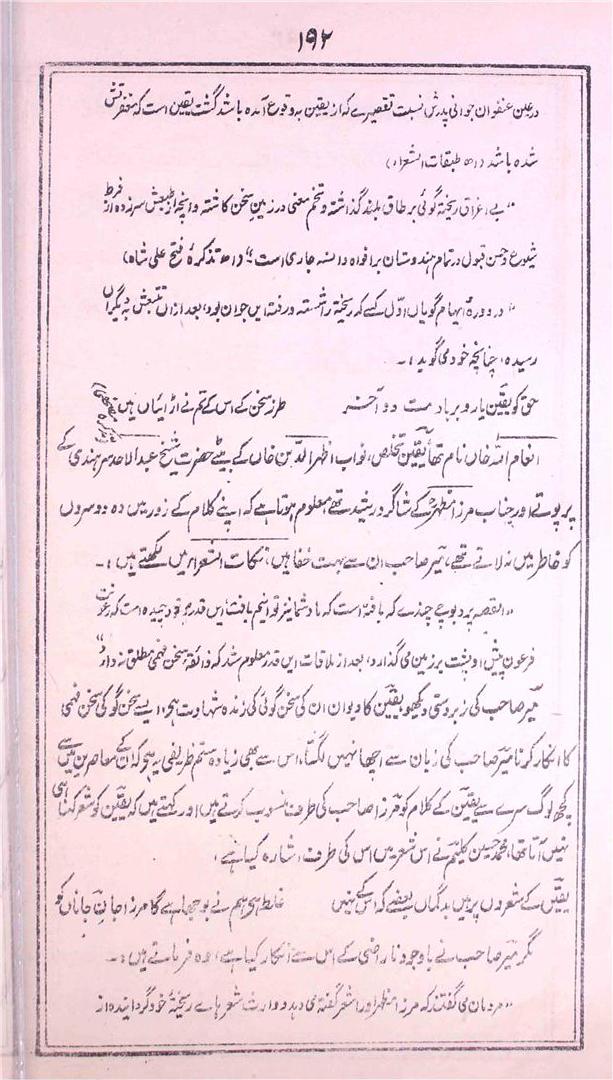 ۱۹۲
در عین عنفوان جوانی پدرش نسبت تقصیرے کہ از یقین بہ وقوع آمدہ باشد گشت یقین است کہ مغفرتش
شدہ باشد (اھ طبقات الشعراء)
"بے اغراق ریختہ گوئی بر طاق بلند گذاشتہ و تخم معنی در زمین سخن کاشتہ و آنچہ از طبعش سرزدہ از فرط
شیوع حسن قبول در تمام ہندوستان بر افواہ و السنہ جاری است" (اھ تذکرۂ فتح علی شاہ)
"در دورۂ ایہام گویاں اوّل کسے کہ ریختہ را شستہ و رفتہ ایں جوان بود، بعد ازاں تتبعش بہ دیگراں
رسیدہ، چنانچہ خود می گوید :۔
حق کو یقیں یارو برباد مت دو آخر طرز سخن کے اس کے تم نے اڑائیاں ہیں (تذکرہ مصحفی)
انعام اللہ خاں نام تھا یقین تخلص، نواب اظہر الدین خاں کے بیٹے حضرت شیخ عبد الاحد سرہندی کے
پرپوتے اور جناب مرزا مظہر کے شاگرد رشید تھے، معلوم ہوتا ہے کہ اپنے کلام کے زور میں وہ دوسروں
کو خاطر میں نہ لاتے تھے، میر صاحب ان سے بہت خفا ہیں، نکات الشعراء میں لکھتے ہیں :۔
"القصہ پر و پوچے چندے کہ یافتہ است کہ ما و شما نیز توانیم یافت، ایں قدر بر خود چیدہ است کہ رعونت
فرعون پیش او پشت بر زمین می گذارد، بعد از ملاقات ایں قدر معلوم شد کہ ذائقۂ سخن فہمی مطلق نہ دارد"
میر صاحب کی زبردستی دیکھو یقین کا دیوان ان کی سخن گوئی کی زندہ شہادت ہی، ایسے سخن گو کی سخن فہمی
کا انکار کرنا میر صاحب کی زبان سے اچھا نہیں لگتا، اس سے بھی زیادہ ستم ظریفی یہ ہی کہ ان کے معاصرین میں سے
کچھ لوگ سرے سے یقین کے کلام کو مرزا صاحب کی طرف منسوب کرتے ہیں اور کہتے ہیں کہ یقین کو شعر کہنا ہی
نہیں آتا تھا، محمد حسین کلیم نے اس شعر میں اس کی طرف اشارہ کیا ہے،
یقیں کے شعروں پر ہیں بدگماں بعضے کہ اس کے نہیں غلط ہی ہم نے بوجھا ہے گا مرزا جان جاناں کو
مگر میر صاحب نے باوجود ناراضی کے اس سے انکار کیا ہے، وہ فرماتے ہیں :۔
"مردماں می گفتند کہ مرزا مظہر او را شعر گفتہ می دہد و وارث شعر ہاے ریختۂ خود گردانیدہ از